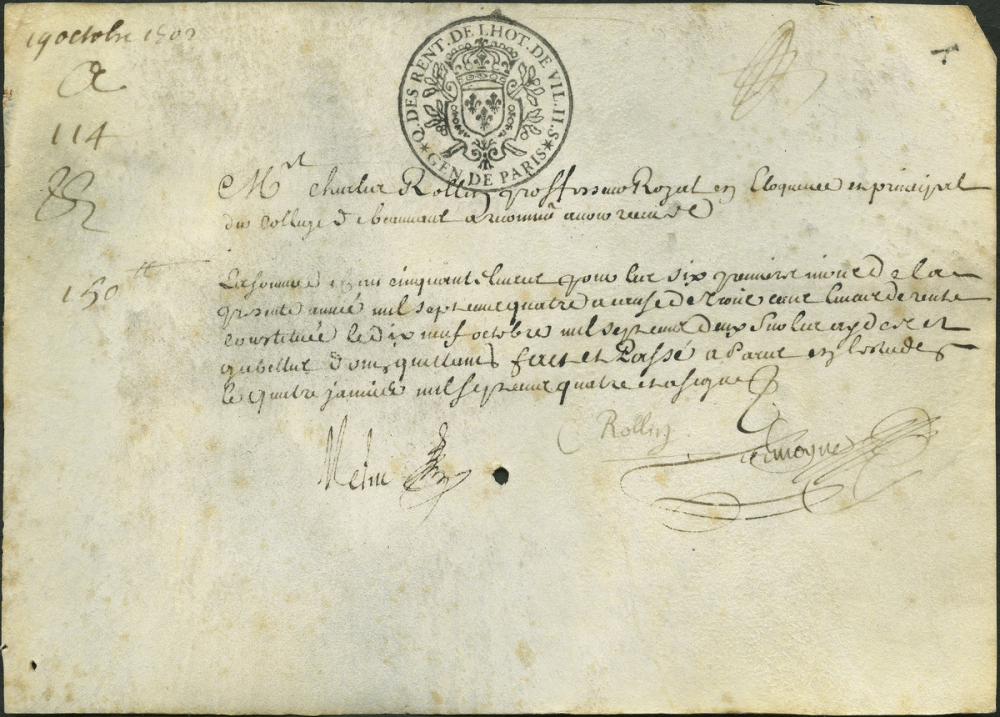 19 octobre 1702
Q. DES RENT. DE LHOT. DE VIL.
GEN. DE PARIS
114
Mre Charles Rollin proffesseur Royal en Eloquence et principal
du College de beauvais a reconnu avoir receu de
150 tt
La somme de cent cinquante livres pour les six premiers mois de la
presente année mil sept cens quatre a cause de Trois cens livres de rente
constituée le dix neuf octobre mil sept cens deux Sur les aydes et
gabelles dont quittance fait et Passé a Paris es Estudes
le quatre janvier mil sept cens quatre et a signé
Rollin